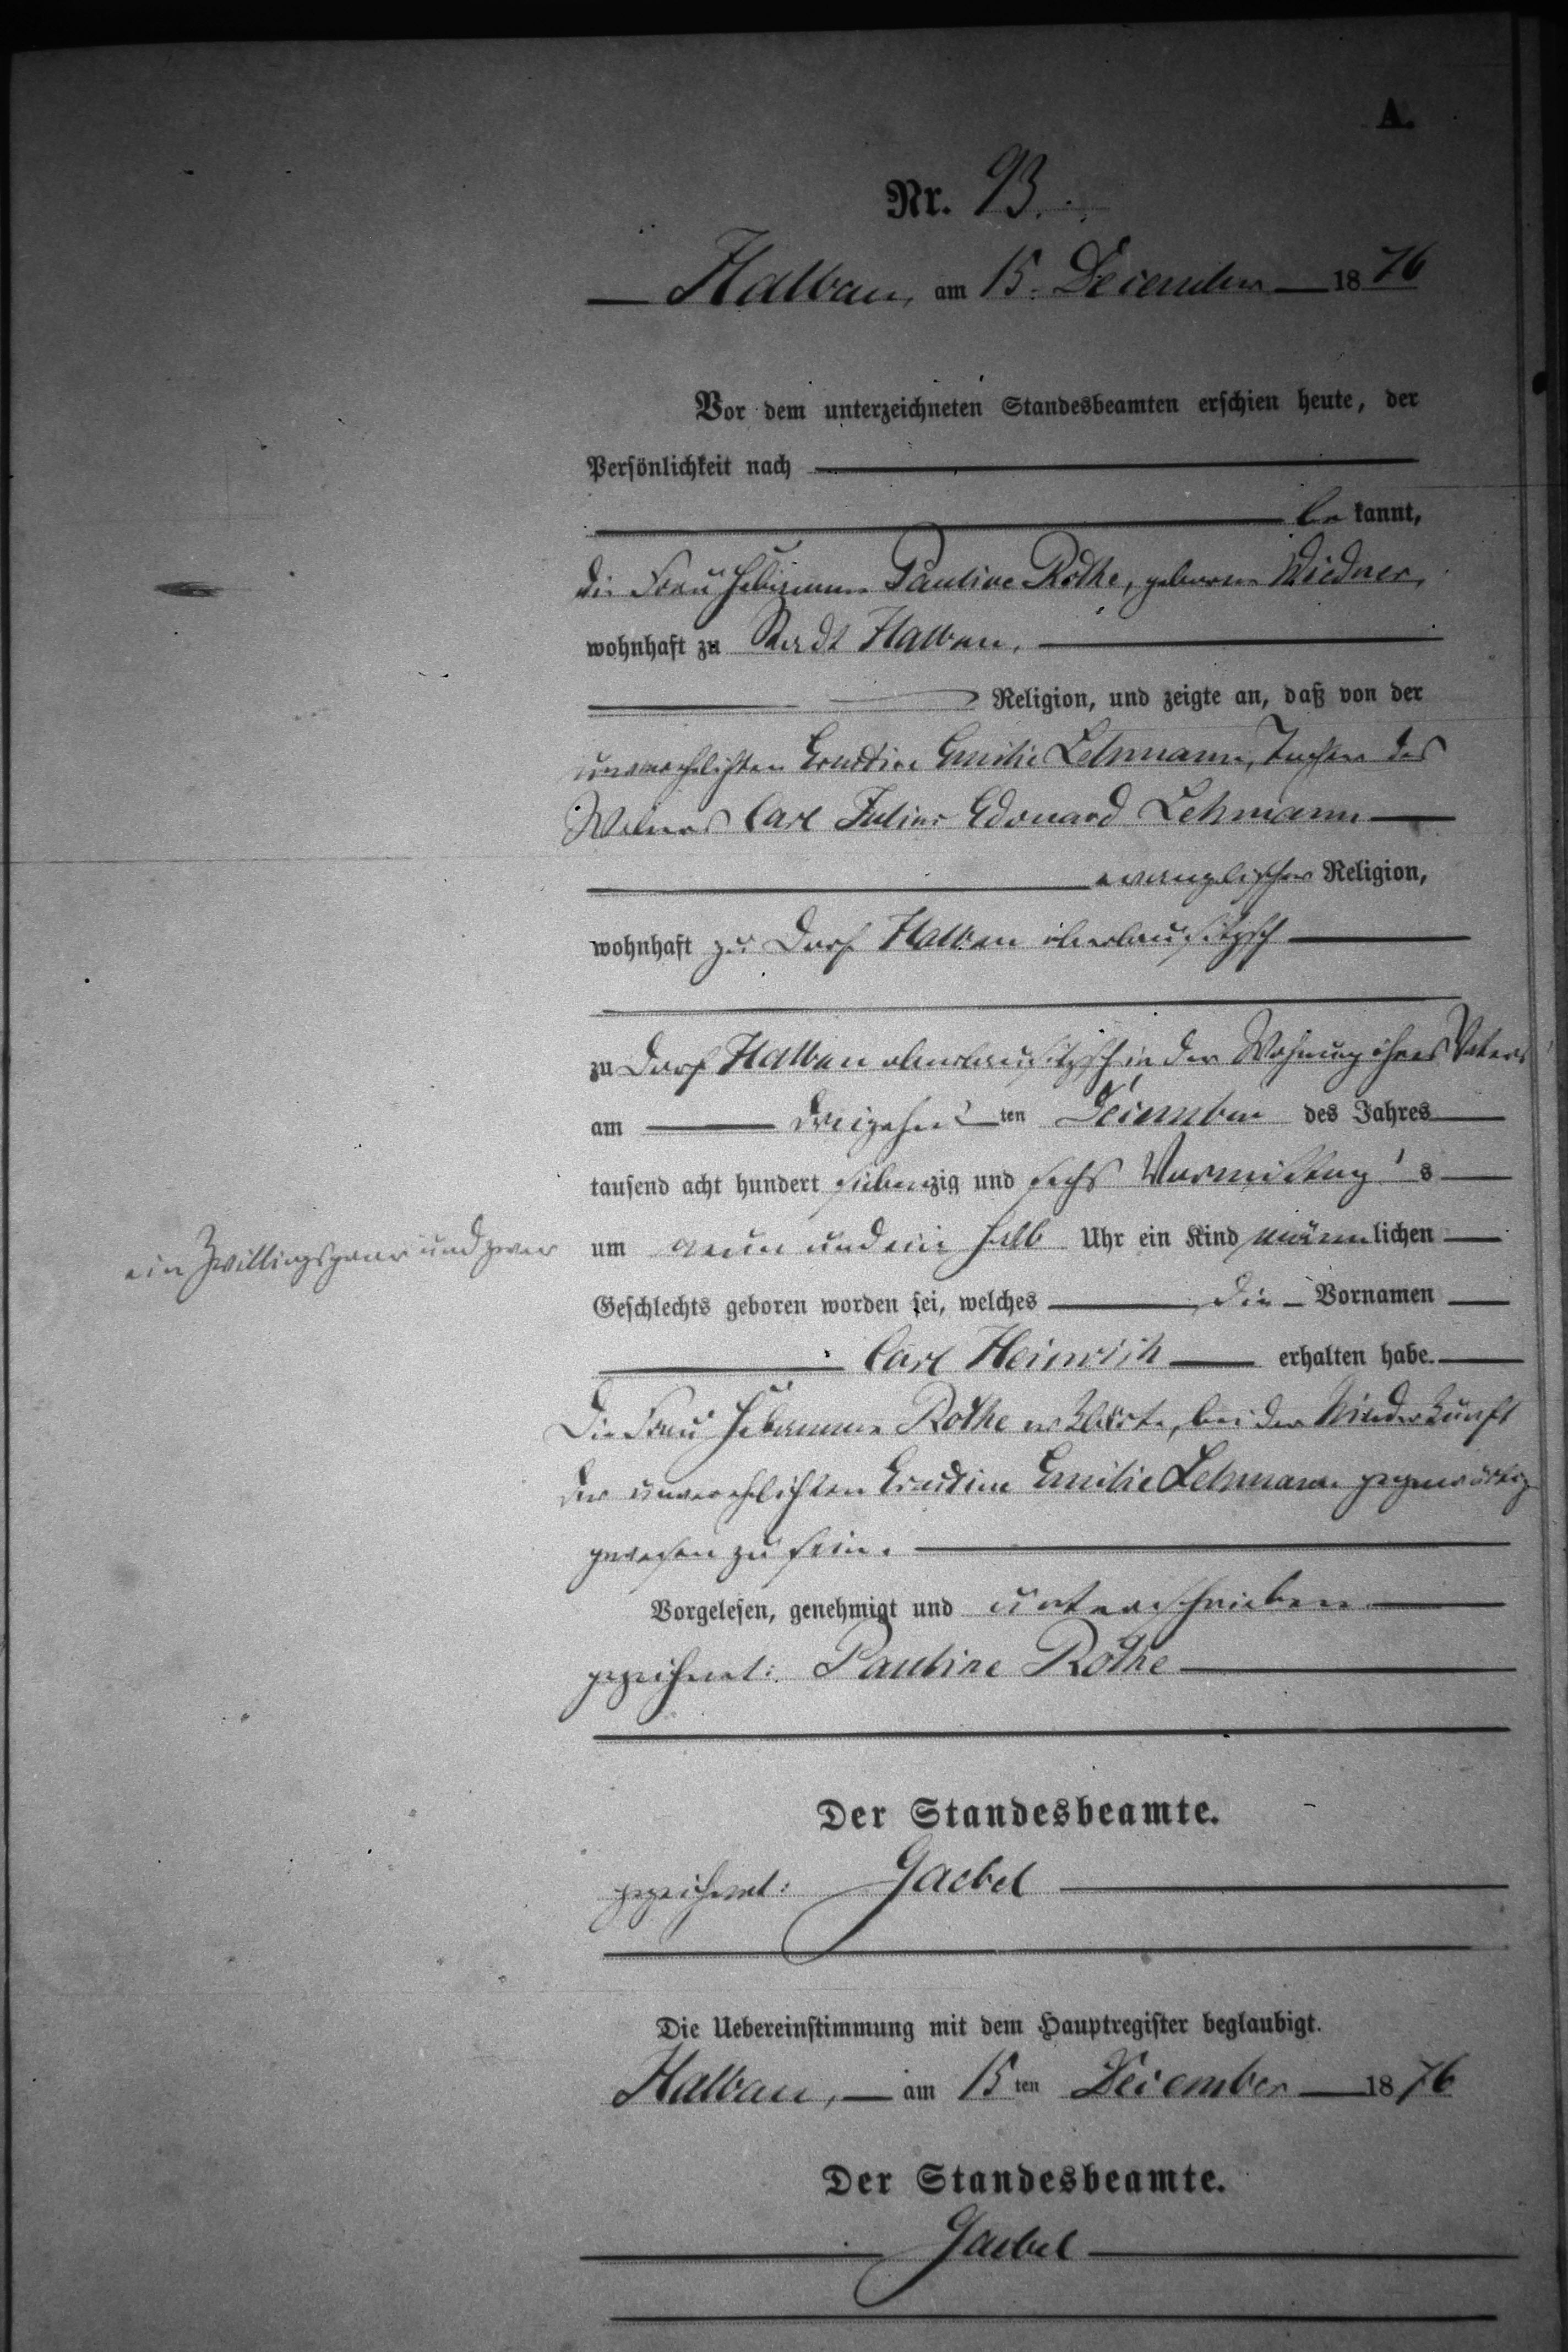 A.
Nr. 93.
Halbau, am 15. December 1876
Vor dem unterzeichneten Standesbeamten erschien heute, der
Persönlichkeit nach
be kannt,
die Frau Hebamme Pauline Rothe, geborene Wiedner,
wohnhaft zu Stadt Halbau.
Religion, und zeigte an, daß von der
unverehelichten Ernestine Emilie Lehmann, Tochter des
Webers Carl Julius Edouard Lehmann
evangelischer Religion,
wohnhaft zu Dorf Halbau oberlausitzisch
zu Dorf Halbau oberlausitzisch in der Wohnung ihres Vaters
am dreizehn ten December des Jahres
tausend acht hundert siebenzig und sechs Vormittag s
ein Zwillingspaar und zwar
um neun undein halb Uhr ein Kind männlichen
Geschlechts geboren worden sei, welches die Vornamen
Carl Heinrich erhalten habe.
Die Frau Hebamme Rothe erklärte, bei der Niederkunft
der unverehelichten Ernestine Emilie Lehmann gegenwärtig
gewesen zu sein.
Vorgelesen, genehmigt und unterschrieben
gezeichnet: Pauline Rothe
Der Standesbeamte.
gezeichnet: Gaebel
Die Uebereinstimmung mit dem Hauptregister beglaubigt.
Halbau, am 15ten December 1876
Der Standesbeamte.
Gaebel